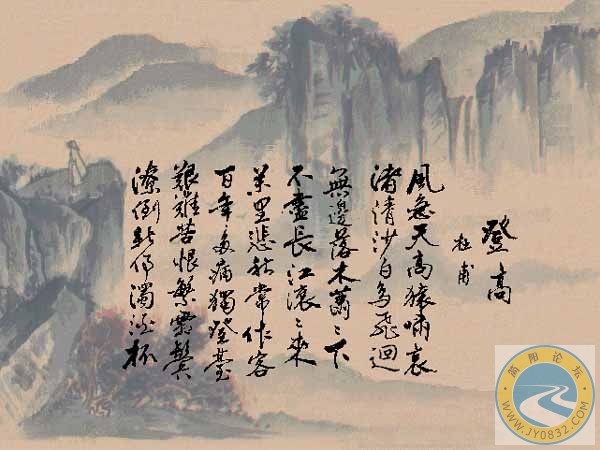 登高
杜甫
風急天高猿嘯哀
渚清沙白鳥飛迴
無邊落木蕭〻下
不盡長江滾〻來
萬里悲秋常作客
百年多病獨登臺
艱難苦恨繁霜鬢
潦倒新停濁酒杯
简阳论坛
WWW.JY0832.COM